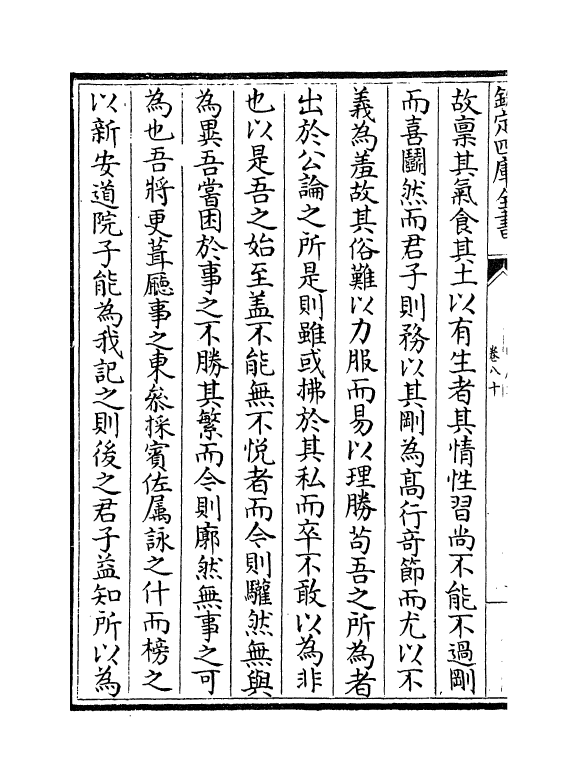 欽定四庫全書
卷八十
故禀其氣食其土以有生者其情性習尚不能不過剛
而喜鬭然而君子則務以其剛為髙行竒節而尤以不
義為羞故其俗難以力服而易以理勝苟吾之所為者
出於公論之所是則雖或拂於其私而卒不敢以為非
也以是吾之始至盖不能無不悦者而今則驩然無與
為異吾嘗困於事之不勝其繁而今則廓然無事之可
為也吾將更葺廳事之東叅採賓佐属詠之什而榜之
以新安道院子能為我記之則後之君子益知所以為